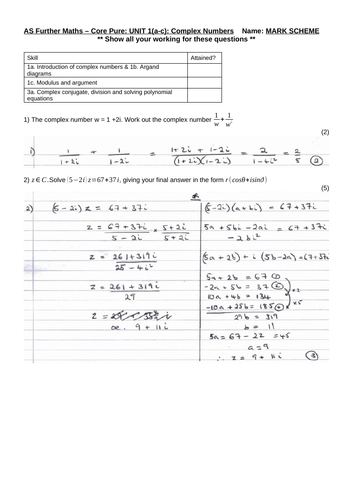 AS Further Maths – Core Pure: UNIT 1(a-c): Complex Numbers Name: MARK SCHEME
** Show all your working for these questions **
Skill Attained?
1a. Introduction of complex numbers & 1b. Argand diagrams
1c. Modulus and argument
3a. Complex conjugate, division and solving polynomial equations
1) The complex number w = 1 +2i. Work out the complex number 1/w + 1/w*
(2)
1) 1/(1+2i) + 1/(1-2i) = (1+2i + 1-2i)/((1+2i)(1-2i)) = 2/(1-4i²) = 2/5 (2)
2) z ∈ C. Solve (5−2i)z=67+37i, giving your final answer in the form r(cosθ+isinθ)
(5)
2) (5-2i) z = 67+37i
z = (67+37i)/(5-2i) × (5+2i)/(5+2i)
z = (261+319i)/(25-4i²)
z = (261+319i)/29
z =
or. 9 + 11i
or
(5-2i)(a+bi) = 67+37i
5a + 5bi - 2ai = 67+37i
- 2bi²
(5a+2b) + i(5b-2a) = 67+37i
5a + 2b = 67
-2a + 5b = 37
×2
×5
10a + 4b = 134
-10a + 25b = 185
29b = 319
b = 11
5a = 67 - 22 = 45
a = 9
∴ z = 9 + 11i (3)